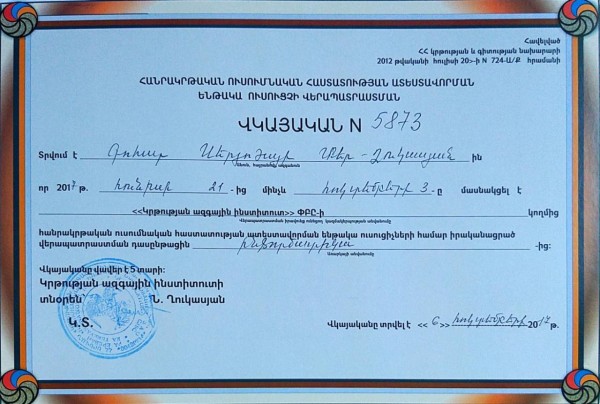 Հավելված
ՀՀ կրթության և գիտության նախարարի
2012 թվականի հուլիսի 20-ի N 724-Ա/Ք հրամանի
ՀԱՆՐԱԿՐԹԱԿԱՆ ՈՒՍՈՒՄՆԱԿԱՆ ՀԱՍՏԱՏՈՒԹՅԱՆ ԱՏԵՍՏԱՎՈՐՄԱՆ
ԵՆԹԱԿԱ ՈՒՍՈՒՑՉԻ ՎԵՐԱՊԱՏՐԱՍՏՄԱՆ
ՎԿԱՅԱԿԱՆ N 5873
Տրվում է Սերյոժայի Տեր-Ղուկասյան ին
անուն, հայրանունը, ազգանուն
որ 2017 թ. հունիսի 21 -ից մինչև հոկտեմբերի 3-ը մասնակցել է
<<Կրթության ազգային ինստիտուտ>> ՓԲԸ-ի կողմից
Վերապատրաստման իրավունք ունեցող կազմակերպության անվանումը
հանրակրթական ուսումնական հաստատության ատեստավորման ենթակա ուսուցիչների համար իրականացրած
վերապատրաստման դասընթացին ինֆորմատիկա -ից:
Առարկայի անվանումը
Վկայականը վավեր է 5 տարի:
Կրթության ազգային ինստիտուտի
տնօրեն Ն. Ղուկասյան
Կ.Տ.
Վկայականը տրվել է << 6 >> հոկտեմբերի 2017 թ.